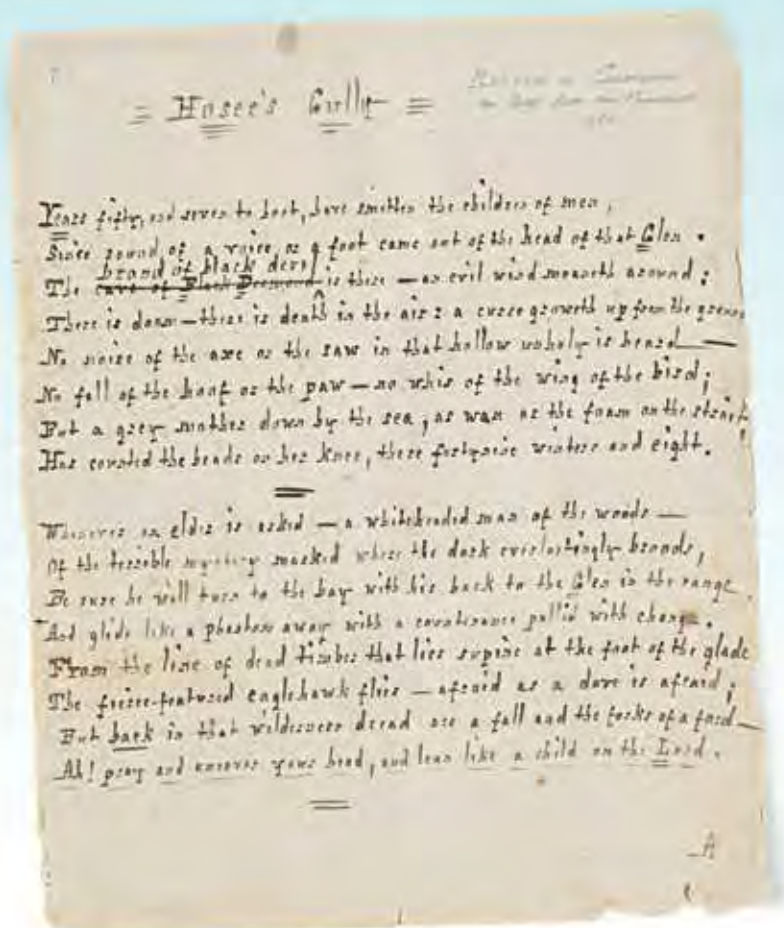 Hosee's Gully
Years fifty, and seven to boot, have smitten the children of men,
Since sound of a voice or a foot came out of the head of that Glen.
brand of black devil
The cave of Black Desmond is there — an evil wind moaneth around;
There is doom — there is death in the air: a curse groweth up from the ground
No noise of the axe or the saw in that hollow unholy is heard —
No fall of the hoof or the paw — no whir of the wing of the bird;
But a grey mother down by the sea, as wan as the foam on the strait,
Has counted the beads on her knee, these forty-nine winters and eight.
Whenever an elder is asked — a whiteheaded man of the woods —
Of the terrible mystery masked where the dark everlastingly broods,
Be sure he will turn to the bay with his back to the Glen in the range,
And glide like a phantom away with a countenance pallid with change.
From the line of dead timber that lies supine at the foot of the glade
The fierce-featured eaglehawk flies — afraid as a dove is afraid;
But back in that wilderness dread are a fall and the forks of a ford —
Ah! pray and uncover your head, and lean like a child on the Lord.